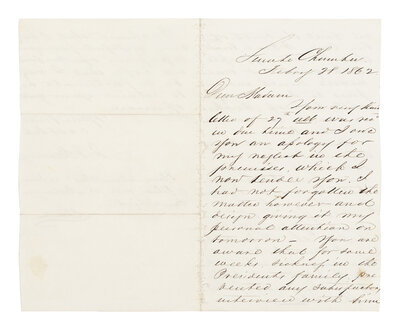 Senate Chamber
Feby 28 1862
Dear Madam
Your very kind
letter of 27th ult was rec
in due time and I owe
you an apology for
my neglect in the
premises, which I
now tender you. I
had not forgotten the
matter however and
design giving it my
personal attention on
tomorrow – You are
aware that for some
weeks sickness in the
Presidents family pre
vented any satisfactory
interview with him